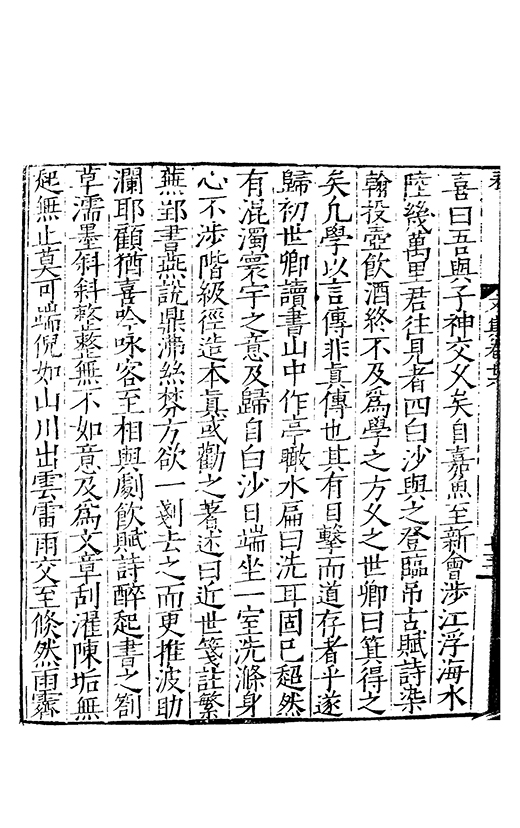 喜曰吾與子神交乆矣自嘉魚至新會涉江浮海水
陸幾萬里君往見者四白沙與之登臨吊古賦詩染
翰投壺飲酒終不及爲學之方乆之世卿曰箕得之
矣凢學以言傳非真傳也其有目擊而道存者乎遂
歸初世卿讀書山中作亭瞰水扁曰洗耳固已超然
有混濁寰宇之意及歸自白沙日端坐一室洗滌身
心不涉階級徑造本真或勸之著述曰近世箋註繁
蕪郢書燕說鼎沸絲棼方欲一剗去之而更推波助
瀾耶顧猶喜吟咏客至相與劇飲賦詩醉起書之劄
草濡墨斜斜整整無不如意及爲文章刮濯陳垢無
起無止莫可端倪如山川出雲雷雨交至倏然雨霽